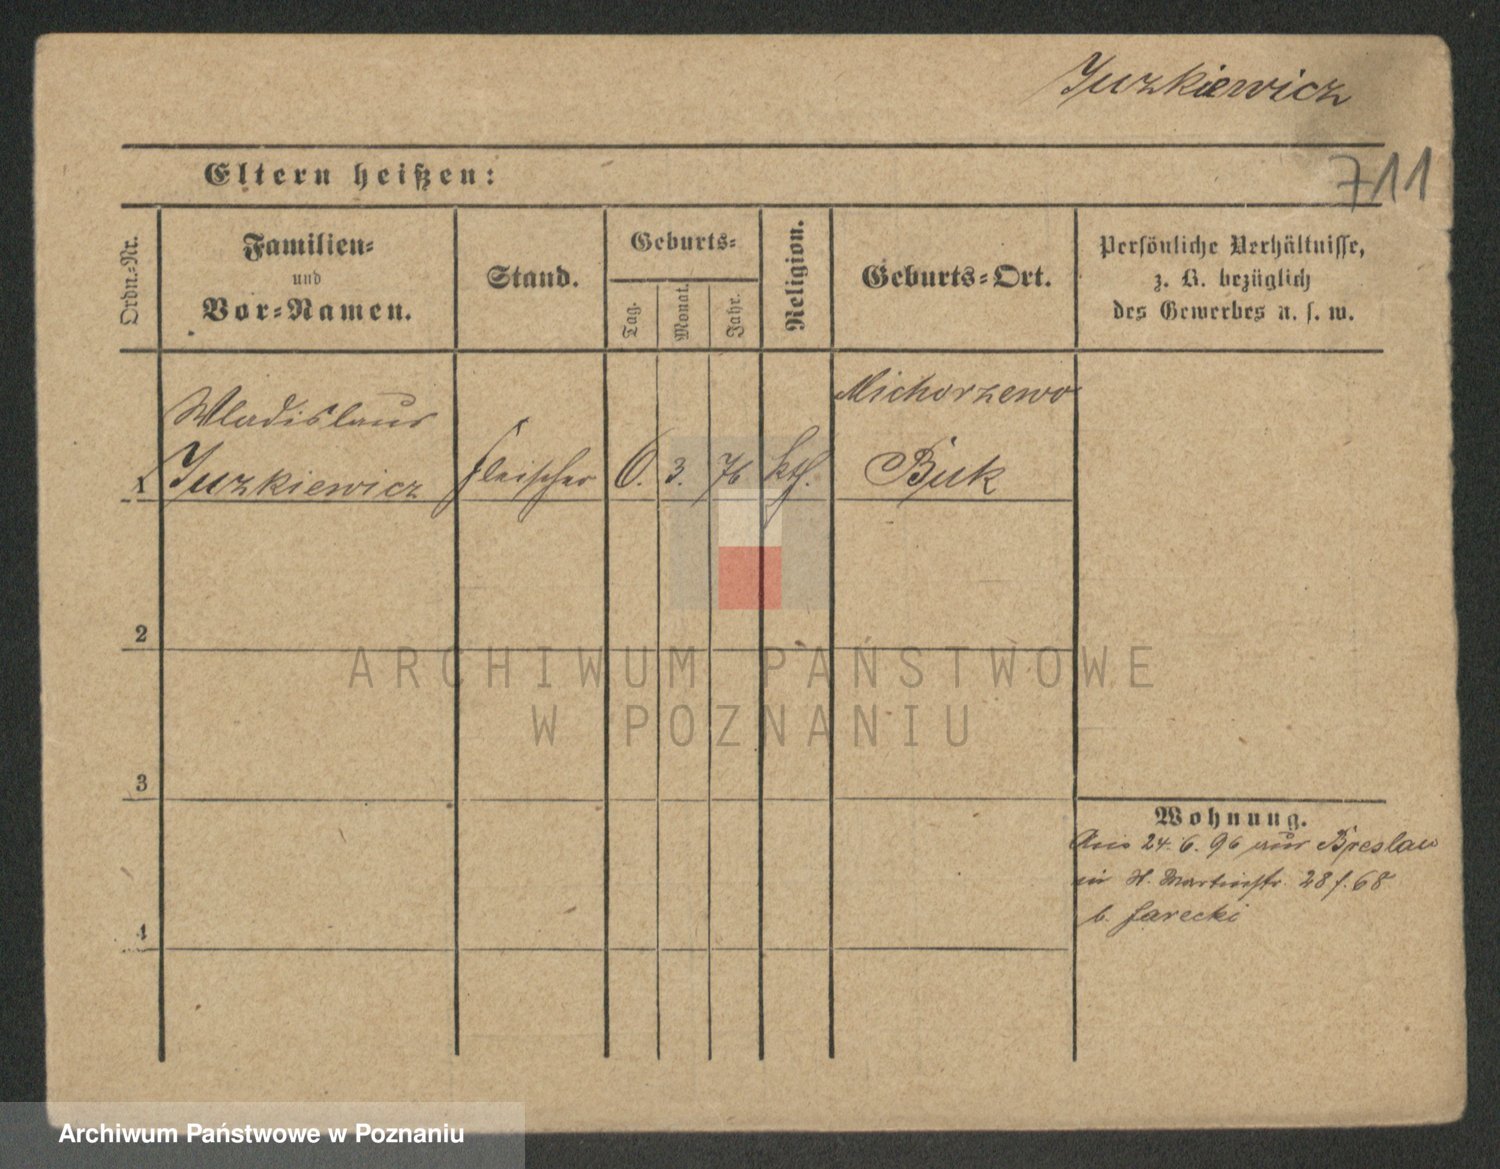 Juzkiewicz
Eltern heißen:
711
Ordn.-Nr.
Familien-
und
Vor-Namen.
Stand.
Geburts-
Tag.
Monat.
Jahr.
Religion.
Geburts-Ort.
Persönliche Verhältnisse,
z. B. bezüglich
des Gewerbes u. s. w.
Wladislaus
Michorzewo
1 Juzkiewicz Fleischer 6. 3. 76 kth. Buk
2
ARCHIWUM PAŃSTWOWE
W POZNANIU
3
Wohnung.
24. 6. 96 aus Breslau
in St. Martinstr. 28 f. 68
b. Jarecki
4
Archiwum Państwowe w Poznaniu